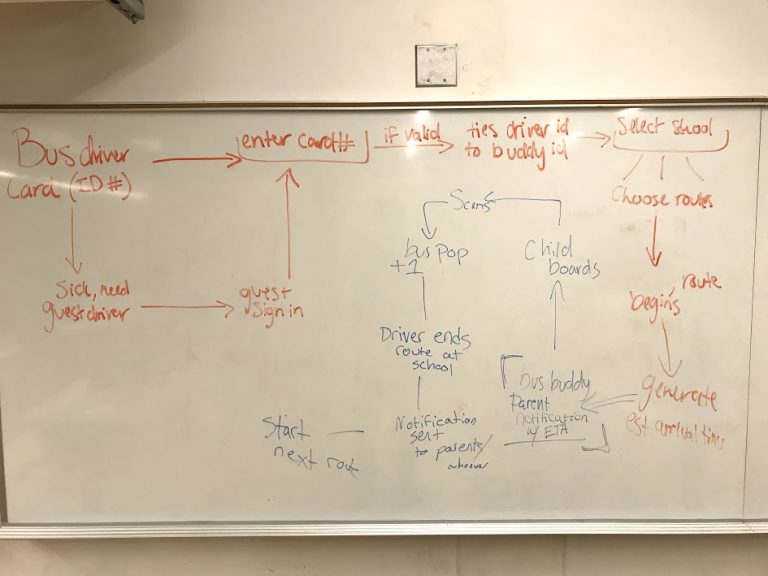 Bus driver
Card (ID #)
enter card#
if valid
ties driver id
to buddy id
Select skool
Choose routes
route
begins
generate
est arrival tims
Sick, need
guest driver
guest
Sign in
Scans
bus pop
+1
Child
boards
Driver ends
route at
school
bus buddy
Parent
notification
w/ ETA
Notification
sent
to parents/
whoever
Start
next rout